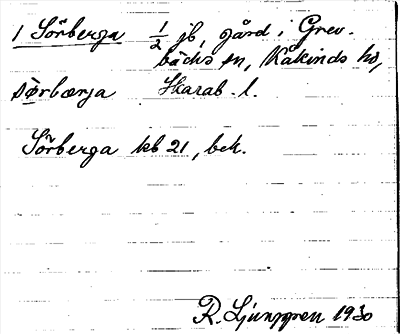 1 Sörberga 1/2 jb, gård i Grev-
bäcks sn, Kåkinds hd,
sö̀rbærja Skarab. l.
Sörberga kb 21, bek.
R. Ljunggren 1930